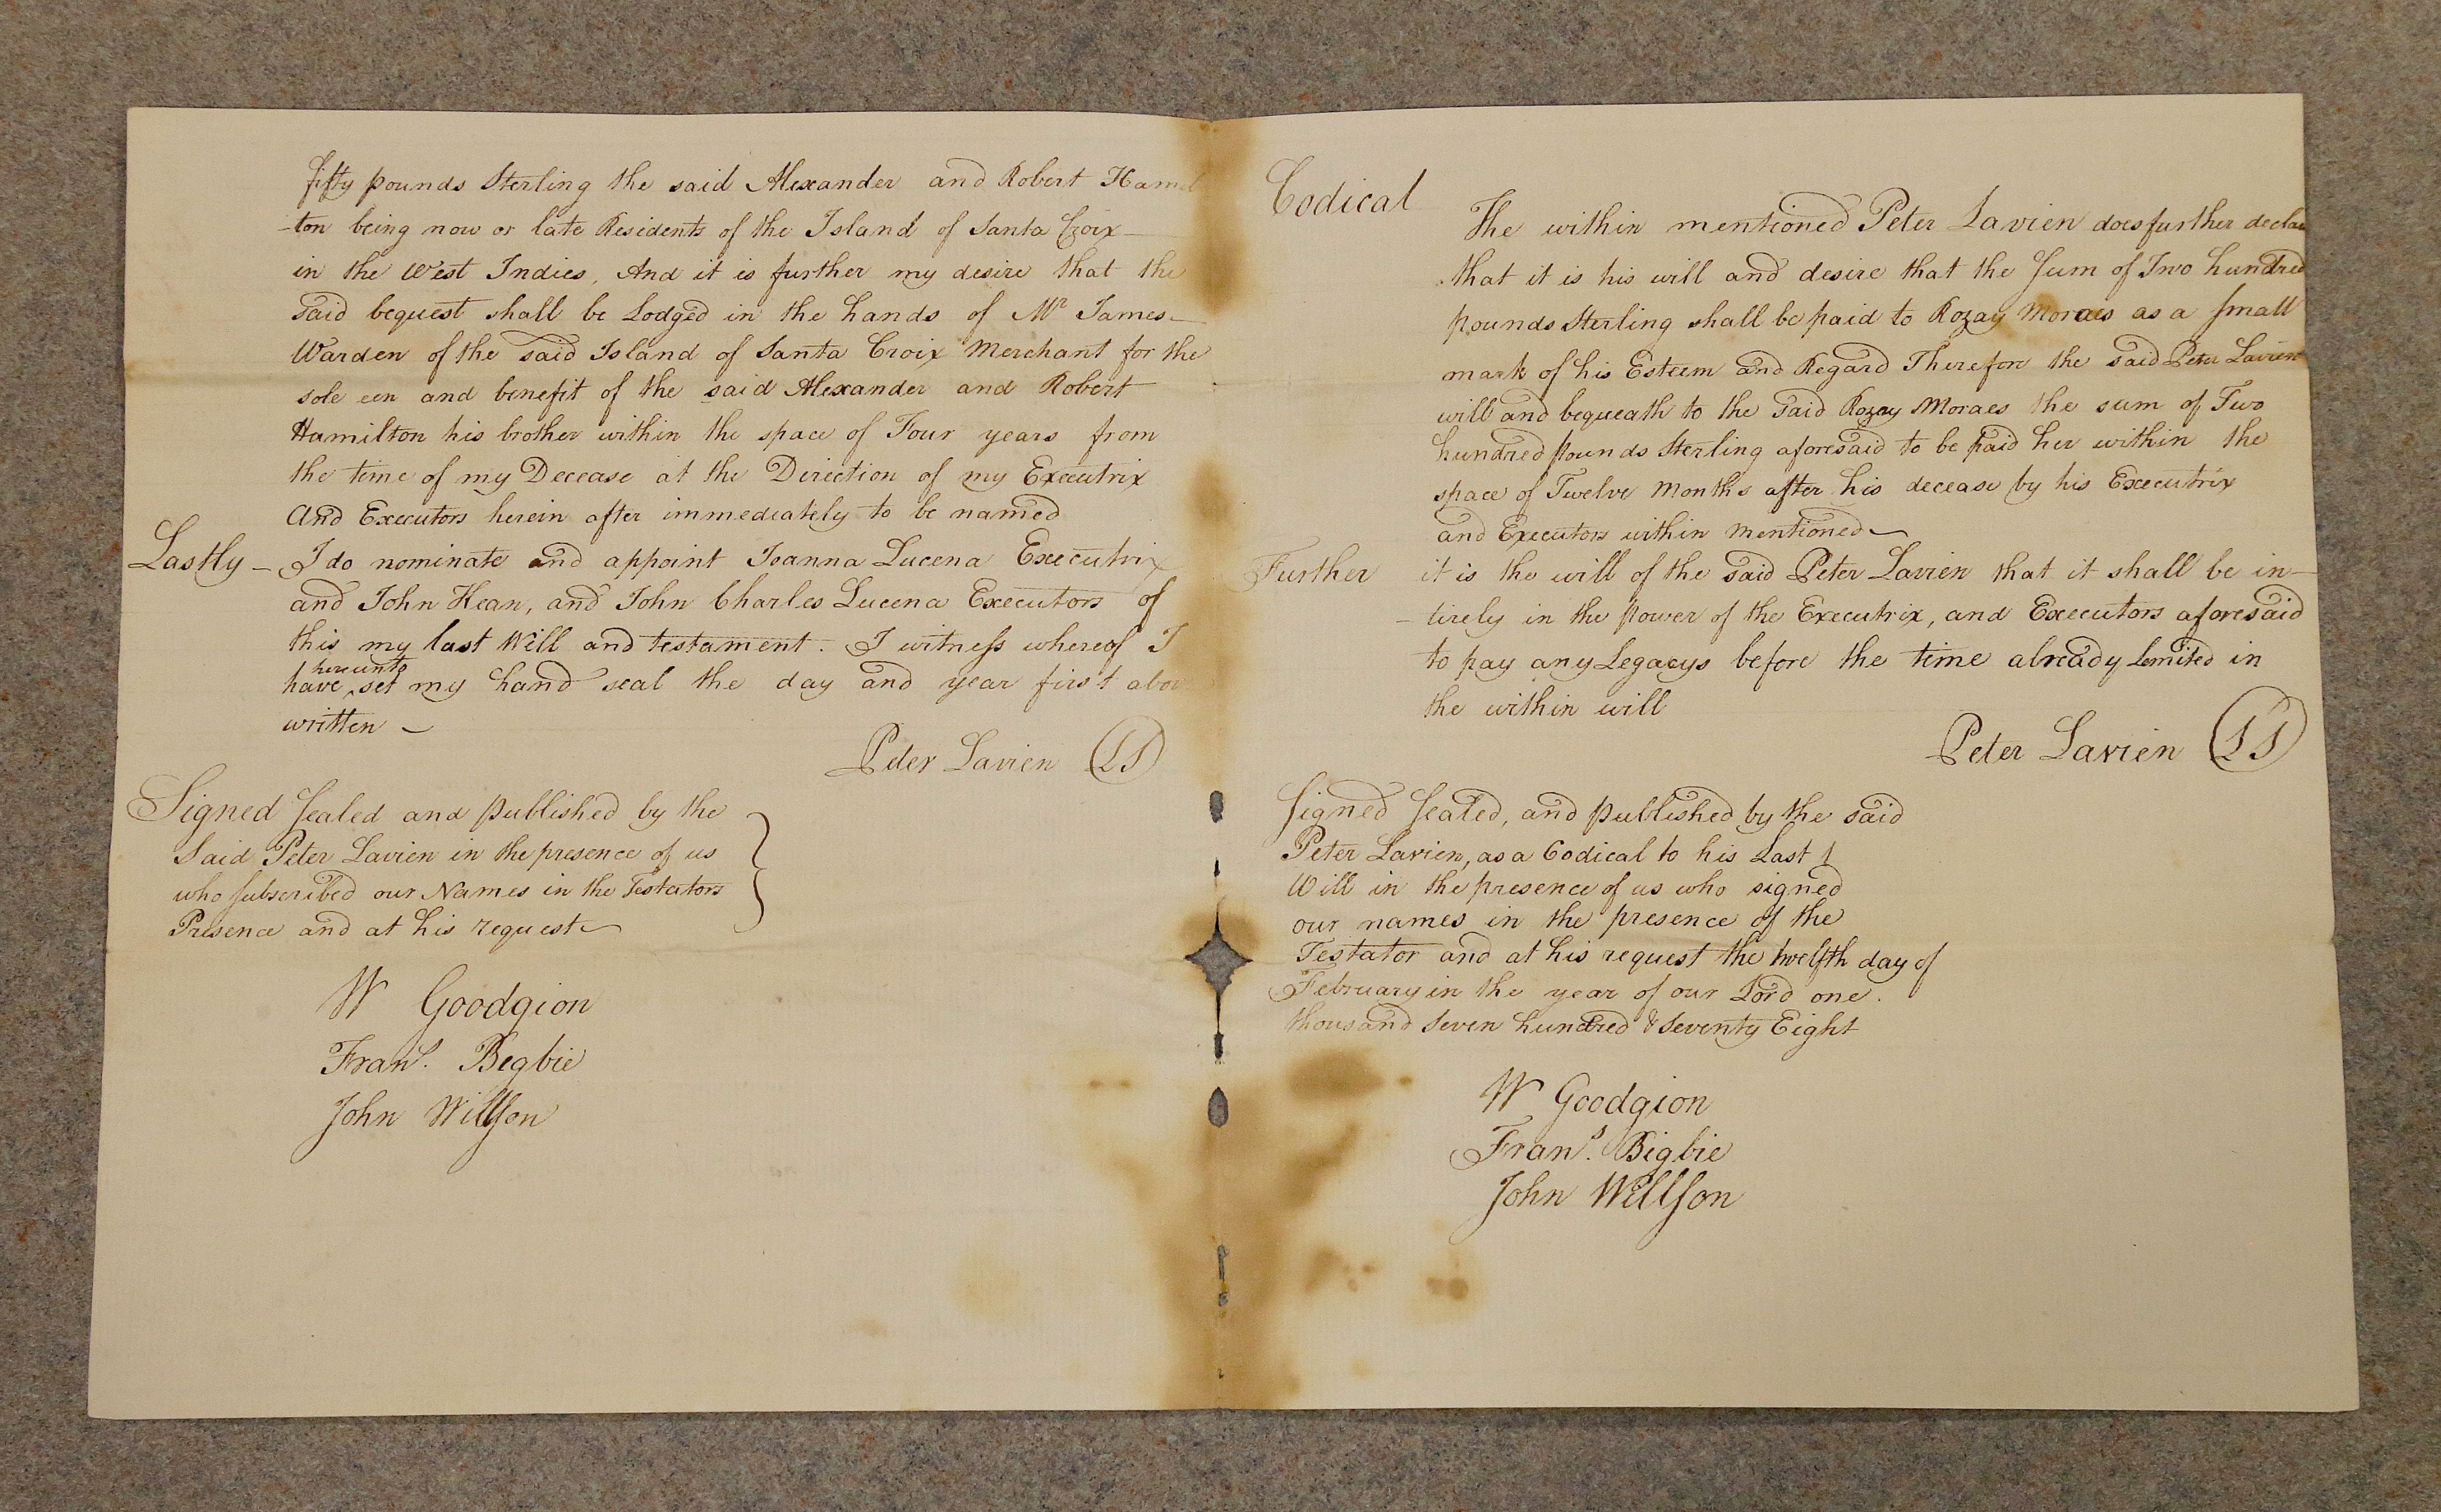 fifty pounds Sterling the said Alexander and Robert Hamil
-ton being now or late Residents of the Island of Santa Croix
in the West Indies, And it is further my desire that the
said bequest shall be Lodged in the hands of Mr James
Warden of the said Island of Santa Croix Merchant for the
sole een and benefit of the said Alexander and Robert
Hamilton his brother within the space of Four years from
the time of my Decease at the Direction of my Executrix
And Executors herein after immediately to be named
Lastly – I do nominate and appoint Joanna Lucena Executrix
and John Kean, and John Charles Lucena Executors of
this my last Will and testament. I witness whereof I
hereunto
have ^ set my hand seal the day and year first abov
written –
Peter Lavien LS
Signed Sealed and published by the
Said Peter Lavien in the presence of us
who subscribed our Names in the Testators
Presence and at his request
W Goodgion
Frans. Begbie
John Willson
Codical
The within mentioned Peter Lavien does further declar
that it is his will and desire that the Sum of Two hundred
pounds Sterling shall be paid to Rozay Moraes as a small
mark of his Esteem and Regard Therefore the said Peter Lavien
will and bequeath to the said Rozay Moraes the sum of Two
hundred Pounds Sterling aforesaid to be paid her within the
space of Twelve Months after his decease by his Executrix
and Executors within mentioned –
Further it is the will of the said Peter Lavien that it shall be in-
-tirely in the power of the Executrix, and Executors aforesaid
to pay any Legacys before the time already limited in
the within will
Peter Lavien LS
Signed Sealed, and published by the said
Peter Lavien, as a Codical to his Last
Will in the presence of us who signed
our names in the presence of the
Testator and at his request the twelfth day of
February in the year of our Lord one
thousand Seven hundred & Seventy Eight
W Goodgion
Frans. Bigbie
John Willson